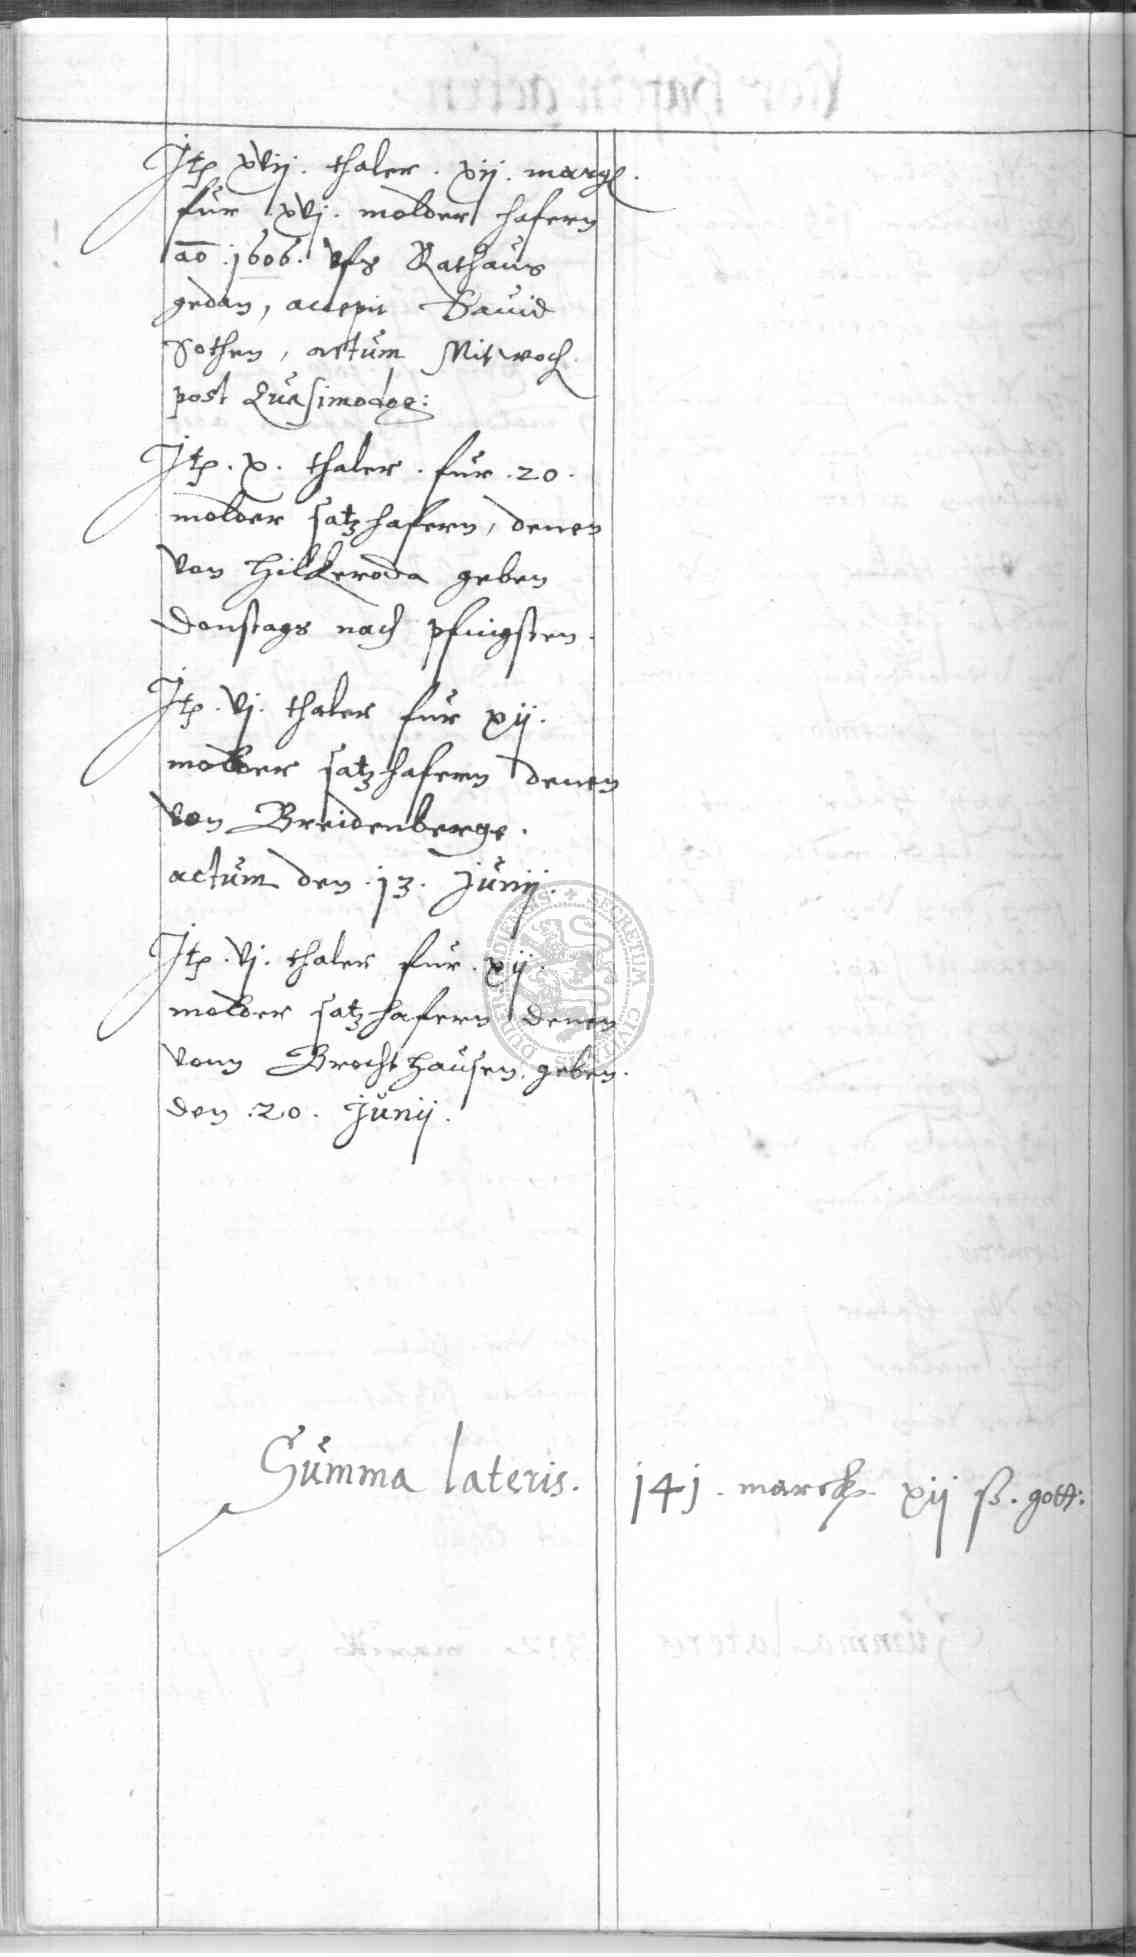 Itp xvij. thaler. xij. margl.
für xvj. molder hafern
ao .1606. vfs Rathaus
gedan, accepit Dauid
Sothen, actum Mitwoch
post Quasimodog:
Itp. x. thaler. für .20.
molder satzhafern, denen
von Hilkeroda geben
Donstags nach pfingsten.
Itp. vj. thaler für xij.
molder satzhafern denen
von Breidenberge.
actum den .13. Junij.
Itp. vj. thaler für xij.
molder satzhafern denen
vonn Brochthausen geben.
den .20. Junij.
SECRETUM CIVITATIS DUDERSTADENSIS
Summa lateris. 141. marck. xij ß. gott: